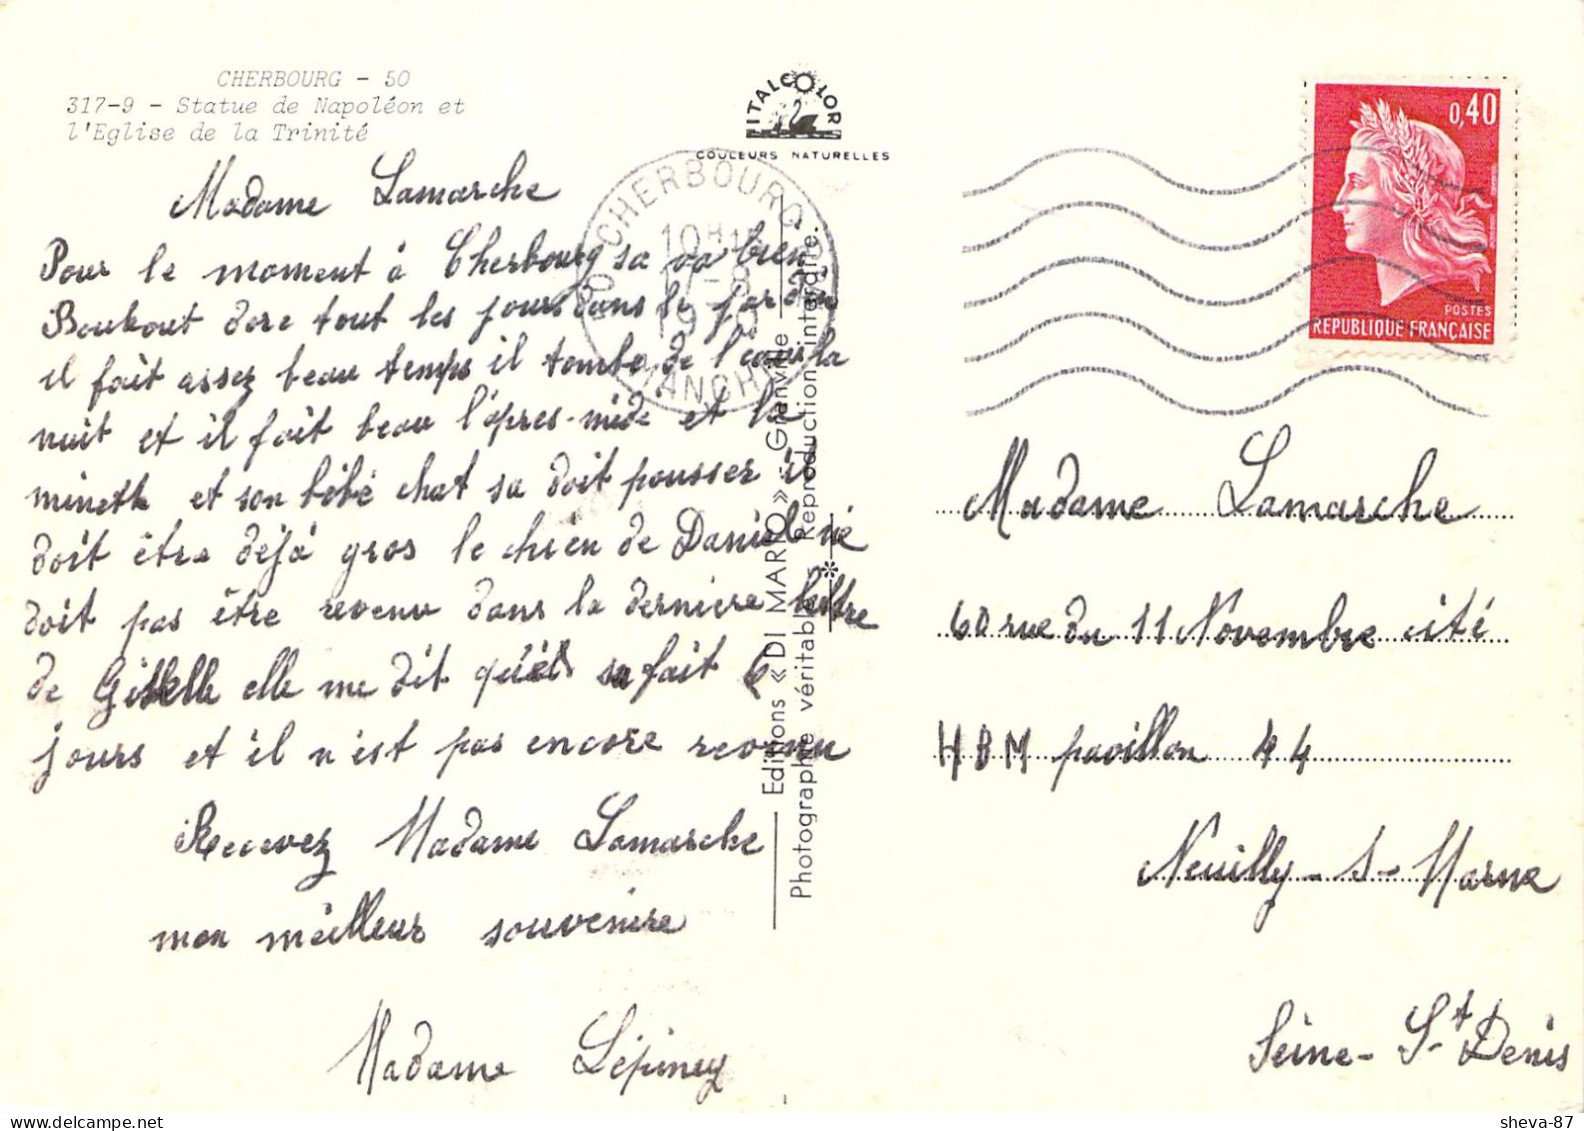 CHERBOURG - 50
317-9 - Statue de Napoléon et
l'Eglise de la Trinité
ITALCOLOR
COULEURS NATURELLES
Madame Lamarche
Pour le moment à Cherbourg sa va bien
dore tout les jours dans le jardin
il fait assez beau temps il tombe de l'eau la
nuit et il fait beau l'apres-mide et la
minette et son bébé chat sa doit pousser il
doit être déjà gros le chien de Daniel ne
doit pas être revenu dans la derniere lettre
de Giselle elle me dit sa fait 6
jours et il n'est pas encore revenu
Recevez Madame Lamarche
mon meilleur souvenire
Madame Lépiney
Editions «DI MARIO» - Granville
Photographie véritable * Reproduction interdite.
50 CHERBOURG
MANCHE
0,40
POSTES
REPUBLIQUE FRANÇAISE
Madame Lamarche
60 rue du 11 Novembre cité
HBM pavillon 44
Neuilly-s-Marne
Seine-St Denis
sheva-87